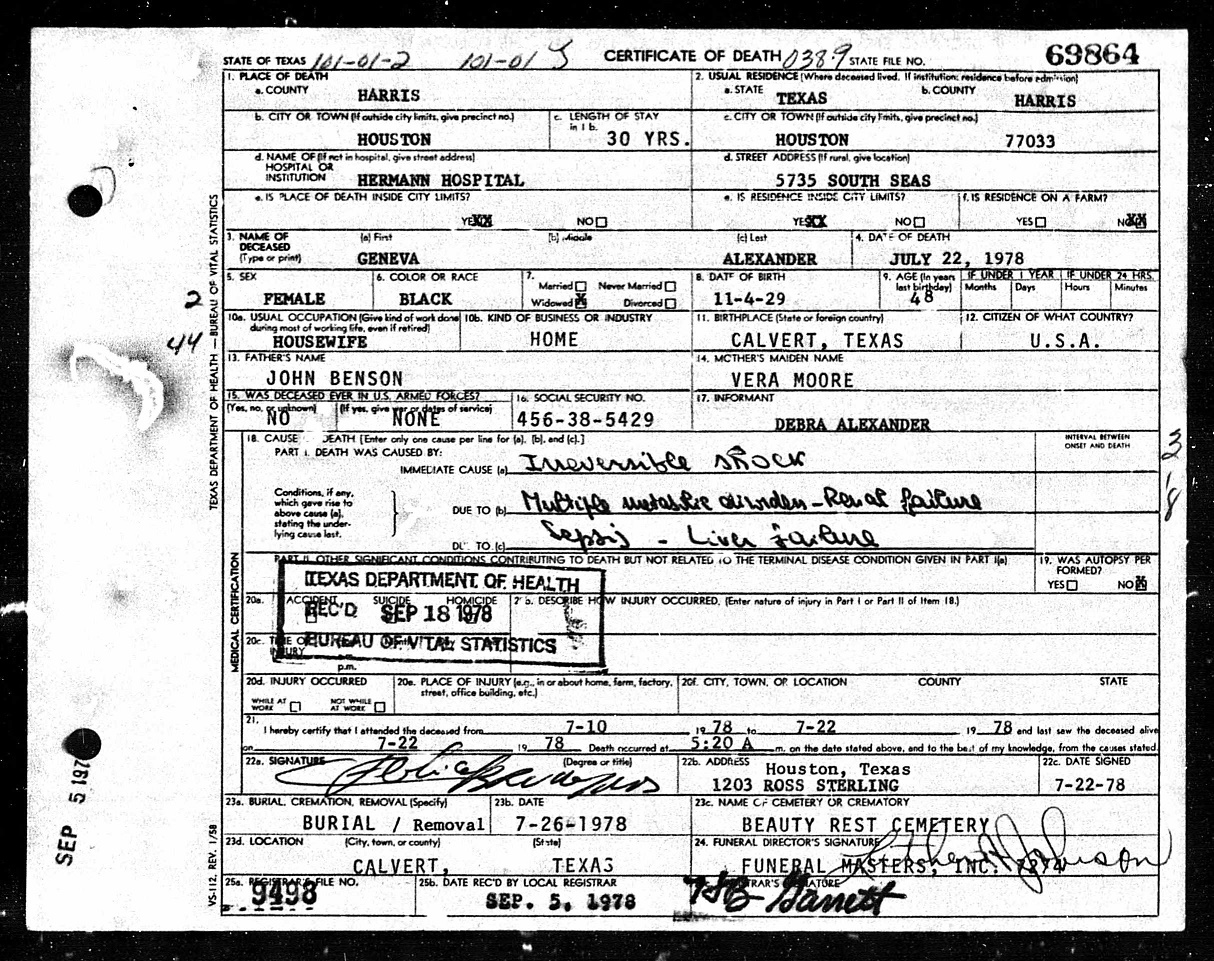 STATE OF TEXAS 101-01-2 101-01 CERTIFICATE OF DEATH 0389 STATE FILE NO. 69864
1. PLACE OF DEATH
a. COUNTY HARRIS
2. USUAL RESIDENCE (Where deceased lived. If institution: residence before admission)
a. STATE TEXAS b. COUNTY HARRIS
b. CITY OR TOWN (If outside city limits, give precinct no.) HOUSTON
c. LENGTH OF STAY in 1 b. 30 YRS.
c. CITY OR TOWN (If outside city limits, give precinct no.) HOUSTON 77033
d. NAME OF (If not in hospital, give street address)
HOSPITAL OR
INSTITUTION HERMANN HOSPITAL
d. STREET ADDRESS (If rural, give location)
5735 SOUTH SEAS
e. IS PLACE OF DEATH INSIDE CITY LIMITS?
YES XX NO
e. IS RESIDENCE INSIDE CITY LIMITS?
YES XX NO
f. IS RESIDENCE ON A FARM?
YES NO XX
3. NAME OF DECEASED (Type or print)
(a) First (b) Middle (c) Last
GENEVA ALEXANDER
4. DATE OF DEATH
JULY 22, 1978
5. SEX FEMALE
6. COLOR OR RACE BLACK
7. Married Never Married
Widowed X Divorced
8. DATE OF BIRTH 11-4-29
9. AGE (In years last birthday) 48
IF UNDER 1 YEAR IF UNDER 24 HRS.
Months Days Hours Minutes
2
44
10a. USUAL OCCUPATION (Give kind of work done during most of working life, even if retired)
HOUSEWIFE
10b. KIND OF BUSINESS OR INDUSTRY
HOME
11. BIRTHPLACE (State or foreign country)
CALVERT, TEXAS
12. CITIZEN OF WHAT COUNTRY?
U.S.A.
13. FATHER'S NAME
JOHN BENSON
14. MOTHER'S MAIDEN NAME
VERA MOORE
15. WAS DECEASED EVER IN U.S. ARMED FORCES?
(Yes, no, or unknown) (If yes, give war or dates of service)
NO NONE
16. SOCIAL SECURITY NO.
456-38-5429
17. INFORMANT
DEBRA ALEXANDER
18. CAUSE DEATH [Enter only one cause per line for (a), (b), and (c).]
INTERVAL BETWEEN ONSET AND DEATH
PART I. DEATH WAS CAUSED BY:
IMMEDIATE CAUSE (a) Irreversible shock
Conditions, if any, which gave rise to above cause (a), stating the underlying cause last.
DUE TO (b) Multiple Renal failure
DUE TO (c) Sepsis - Liver failure
PART II. OTHER SIGNIFICANT CONDITIONS CONTRIBUTING TO DEATH BUT NOT RELATED TO THE TERMINAL DISEASE CONDITION GIVEN IN PART I(a)
19. WAS AUTOPSY PERFORMED?
YES NO X
TEXAS DEPARTMENT OF HEALTH
REC'D SEP 18 1978
BUREAU OF VITAL STATISTICS
20a. ACCIDENT SUICIDE HOMICIDE
DESCRIBE HOW INJURY OCCURRED. (Enter nature of injury in Part I or Part II of Item 18.)
20c. TIME OF INJURY
p.m.
20d. INJURY OCCURRED
WHILE AT WORK NOT WHILE AT WORK
20e. PLACE OF INJURY (e.g., in or about home, farm, factory, street, office building, etc.)
20f. CITY, TOWN, OR LOCATION COUNTY STATE
21.
I hereby certify that I attended the deceased from 7-10 19 78 to 7-22 19 78 and last saw the deceased alive
on 7-22 19 78 Death occurred at 5:20 A m. on the date stated above, and to the best of my knowledge, from the causes stated.
22a. SIGNATURE (Degree or title)
22b. ADDRESS Houston, Texas
1203 ROSS STERLING
22c. DATE SIGNED
7-22-78
23a. BURIAL, CREMATION, REMOVAL (Specify)
BURIAL / Removal
23b. DATE
7-26-1978
23c. NAME OF CEMETERY OR CREMATORY
BEAUTY REST CEMETERY
23d. LOCATION (City, town, or county) (State)
CALVERT, TEXAS
24. FUNERAL DIRECTOR'S SIGNATURE
FUNERAL MASTERS, INC. Johnson
25a. REGISTRAR'S FILE NO.
9498
25b. DATE REC'D BY LOCAL REGISTRAR
SEP. 5, 1978
SIGNATURE
Garrett
TEXAS DEPARTMENT OF HEALTH — BUREAU OF VITAL STATISTICS
MEDICAL CERTIFICATION
VS-112, REV. 1/58
SEP 5 197